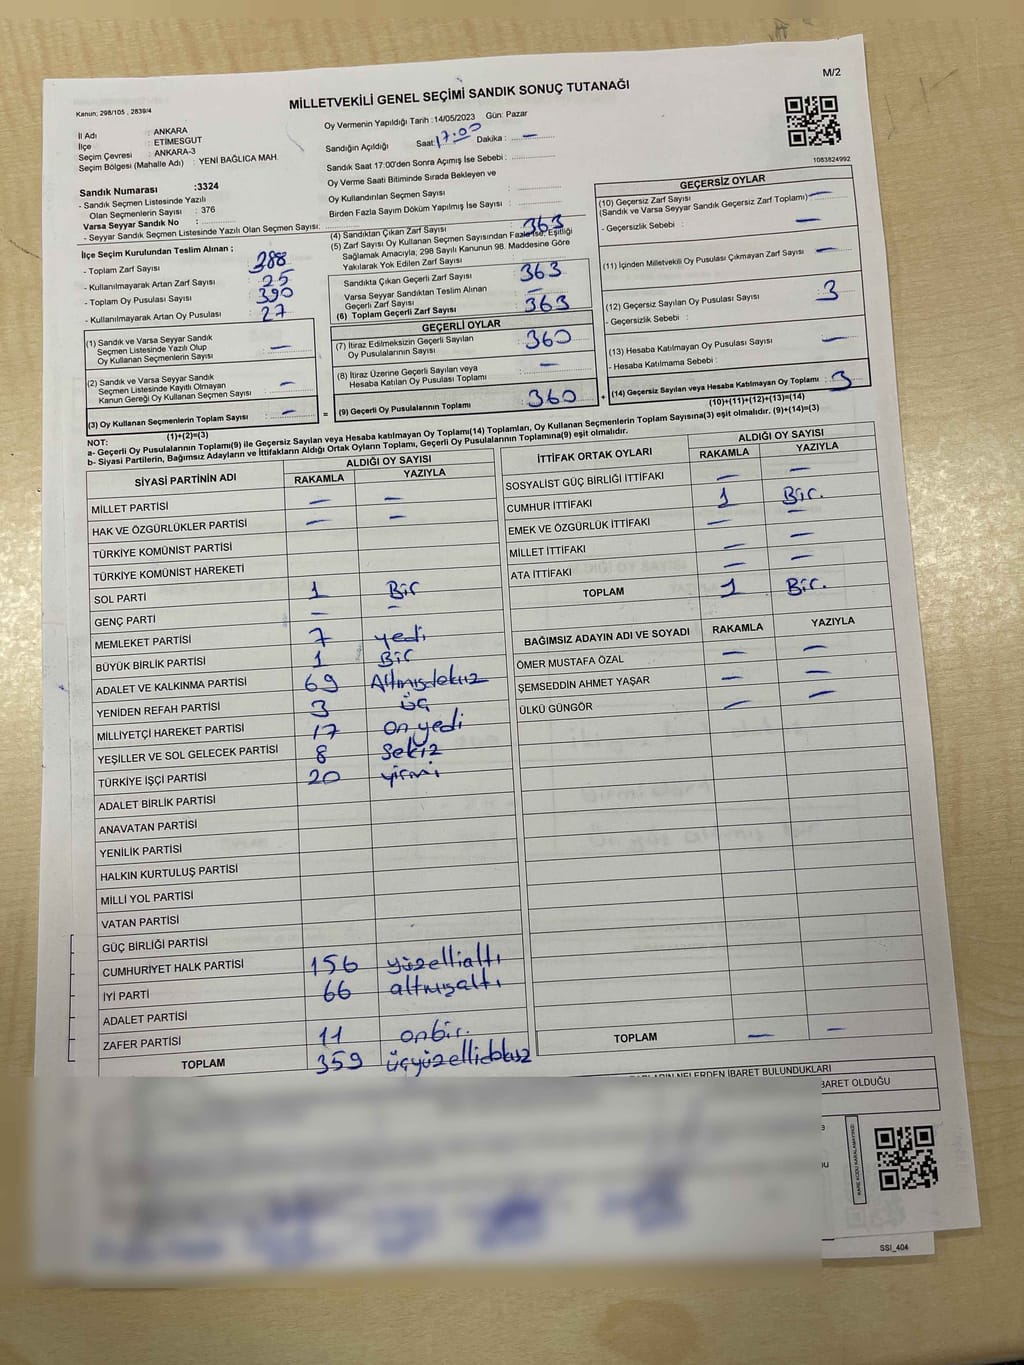 M/2
MİLLETVEKİLİ GENEL SEÇİMİ SANDIK SONUÇ TUTANAĞI
Kanun; 298/105 , 2839/4
İl Adı : ANKARA
İlçe : ETİMESGUT
Seçim Çevresi : ANKARA-3
Seçim Bölgesi (Mahalle Adı) : YENİ BAĞLICA MAH.
Sandık Numarası :3324
- Sandık Seçmen Listesinde Yazılı
Olan Seçmenlerin Sayısı : 376
Varsa Seyyar Sandık No :
- Seyyar Sandık Seçmen Listesinde Yazılı Olan Seçmen Sayısı:
Oy Vermenin Yapıldığı Tarih :14/05/2023 Gün: Pazar
Sandığın Açıldığı Saat: 17:00 Dakika : —
Sandık Saat 17:00'den Sonra Açımış İse Sebebi :
Oy Verme Saati Bitiminde Sırada Bekleyen ve
Oy Kullandırılan Seçmen Sayısı :
Birden Fazla Sayım Döküm Yapılmış İse Sayısı :
1083824992
İlçe Seçim Kurulundan Teslim Alınan ;
- Toplam Zarf Sayısı : 388
- Kullanılmayarak Artan Zarf Sayısı : 25
- Toplam Oy Pusulası Sayısı : 390
- Kullanılmayarak Artan Oy Pusulası : 27
(1) Sandık ve Varsa Seyyar Sandık
Seçmen Listesinde Yazılı Olup
Oy Kullanan Seçmenlerin Sayısı : —
(2) Sandık ve Varsa Seyyar Sandık
Seçmen Listesinde Kayıtlı Olmayan
Kanun Gereği Oy Kullanan Seçmen Sayısı : —
(3) Oy Kullanan Seçmenlerin Toplam Sayısı : —
(1)+(2)=(3)
(4) Sandıktan Çıkan Zarf Sayısı : 363
(5) Zarf Sayısı Oy Kullanan Seçmen Sayısından Fazla ise, Eşitliği
Sağlamak Amacıyla; 298 Sayılı Kanunun 98. Maddesine Göre
Yakılarak Yok Edilen Zarf Sayısı :
Sandıkta Çıkan Geçerli Zarf Sayısı : 363
Varsa Seyyar Sandıktan Teslim Alınan
Geçerli Zarf Sayısı : —
(6) Toplam Geçerli Zarf Sayısı : 363
GEÇERLİ OYLAR
(7) İtiraz Edilmeksizin Geçerli Sayılan
Oy Pusulalarının Sayısı : 360
(8) İtiraz Üzerine Geçerli Sayılan veya
Hesaba Katılan Oy Pusulası Toplamı : —
= (9) Geçerli Oy Pusulalarının Toplamı : 360 +
GEÇERSİZ OYLAR
(10) Geçersiz Zarf Sayısı
(Sandık ve Varsa Seyyar Sandık Geçersiz Zarf Toplamı) —
- Geçersizlik Sebebi : —
(11) İçinden Milletvekili Oy Pusulası Çıkmayan Zarf Sayısı : —
(12) Geçersiz Sayılan Oy Pusulası Sayısı : 3
- Geçersizlik Sebebi :
(13) Hesaba Katılmayan Oy Pusulası Sayısı : —
- Hesaba Katılmama Sebebi :
(14) Geçersiz Sayılan veya Hesaba Katılmayan Oy Toplamı : 3
(10)+(11)+(12)+(13)=(14)
NOT:
a- Geçerli Oy Pusulalarının Toplamı(9) ile Geçersiz Sayılan veya Hesaba katılmayan Oy Toplamı(14) Toplamları, Oy Kullanan Seçmenlerin Toplam Sayısına(3) eşit olmalıdır. (9)+(14)=(3)
b- Siyasi Partilerin, Bağımsız Adayların ve İttifakların Aldığı Ortak Oyların Toplamı, Geçerli Oy Pusulalarının Toplamına(9) eşit olmalıdır.
SİYASİ PARTİNİN ADI ALDIĞI OY SAYISI
RAKAMLA YAZIYLA
MİLLET PARTİSİ — —
HAK VE ÖZGÜRLÜKLER PARTİSİ — —
TÜRKİYE KOMÜNİST PARTİSİ
TÜRKİYE KOMÜNİST HAREKETİ
SOL PARTİ 1 Bir
GENÇ PARTİ — —
MEMLEKET PARTİSİ 7 yedi
BÜYÜK BİRLİK PARTİSİ 1 Bir
ADALET VE KALKINMA PARTİSİ 69 Altmışdokuz
YENİDEN REFAH PARTİSİ 3 üç
MİLLİYETÇİ HAREKET PARTİSİ 17 on yedi
YEŞİLLER VE SOL GELECEK PARTİSİ 8 Sekiz
TÜRKİYE İŞÇİ PARTİSİ 20 yirmi
ADALET BİRLİK PARTİSİ
ANAVATAN PARTİSİ
YENİLİK PARTİSİ
HALKIN KURTULUŞ PARTİSİ
MİLLİ YOL PARTİSİ
VATAN PARTİSİ
GÜÇ BİRLİĞİ PARTİSİ
CUMHURİYET HALK PARTİSİ 156 yüzellialtı
İYİ PARTİ 66 altmışaltı
ADALET PARTİSİ
ZAFER PARTİSİ 11 onbir.
TOPLAM 359 üçyüzellidokuz
İTTİFAK ORTAK OYLARI ALDIĞI OY SAYISI
RAKAMLA YAZIYLA
SOSYALİST GÜÇ BİRLİĞİ İTTİFAKI — —
CUMHUR İTTİFAKI 1 Bir.
EMEK VE ÖZGÜRLÜK İTTİFAKI — —
MİLLET İTTİFAKI — —
ATA İTTİFAKI — —
TOPLAM 1 Bir.
BAĞIMSIZ ADAYIN ADI VE SOYADI RAKAMLA YAZIYLA
ÖMER MUSTAFA ÖZAL — —
ŞEMSEDDİN AHMET YAŞAR — —
ÜLKÜ GÜNGÖR — —
TOPLAM — —
NELERDEN İBARET BULUNDUKLARI
BARET OLDUĞU
SSI_404